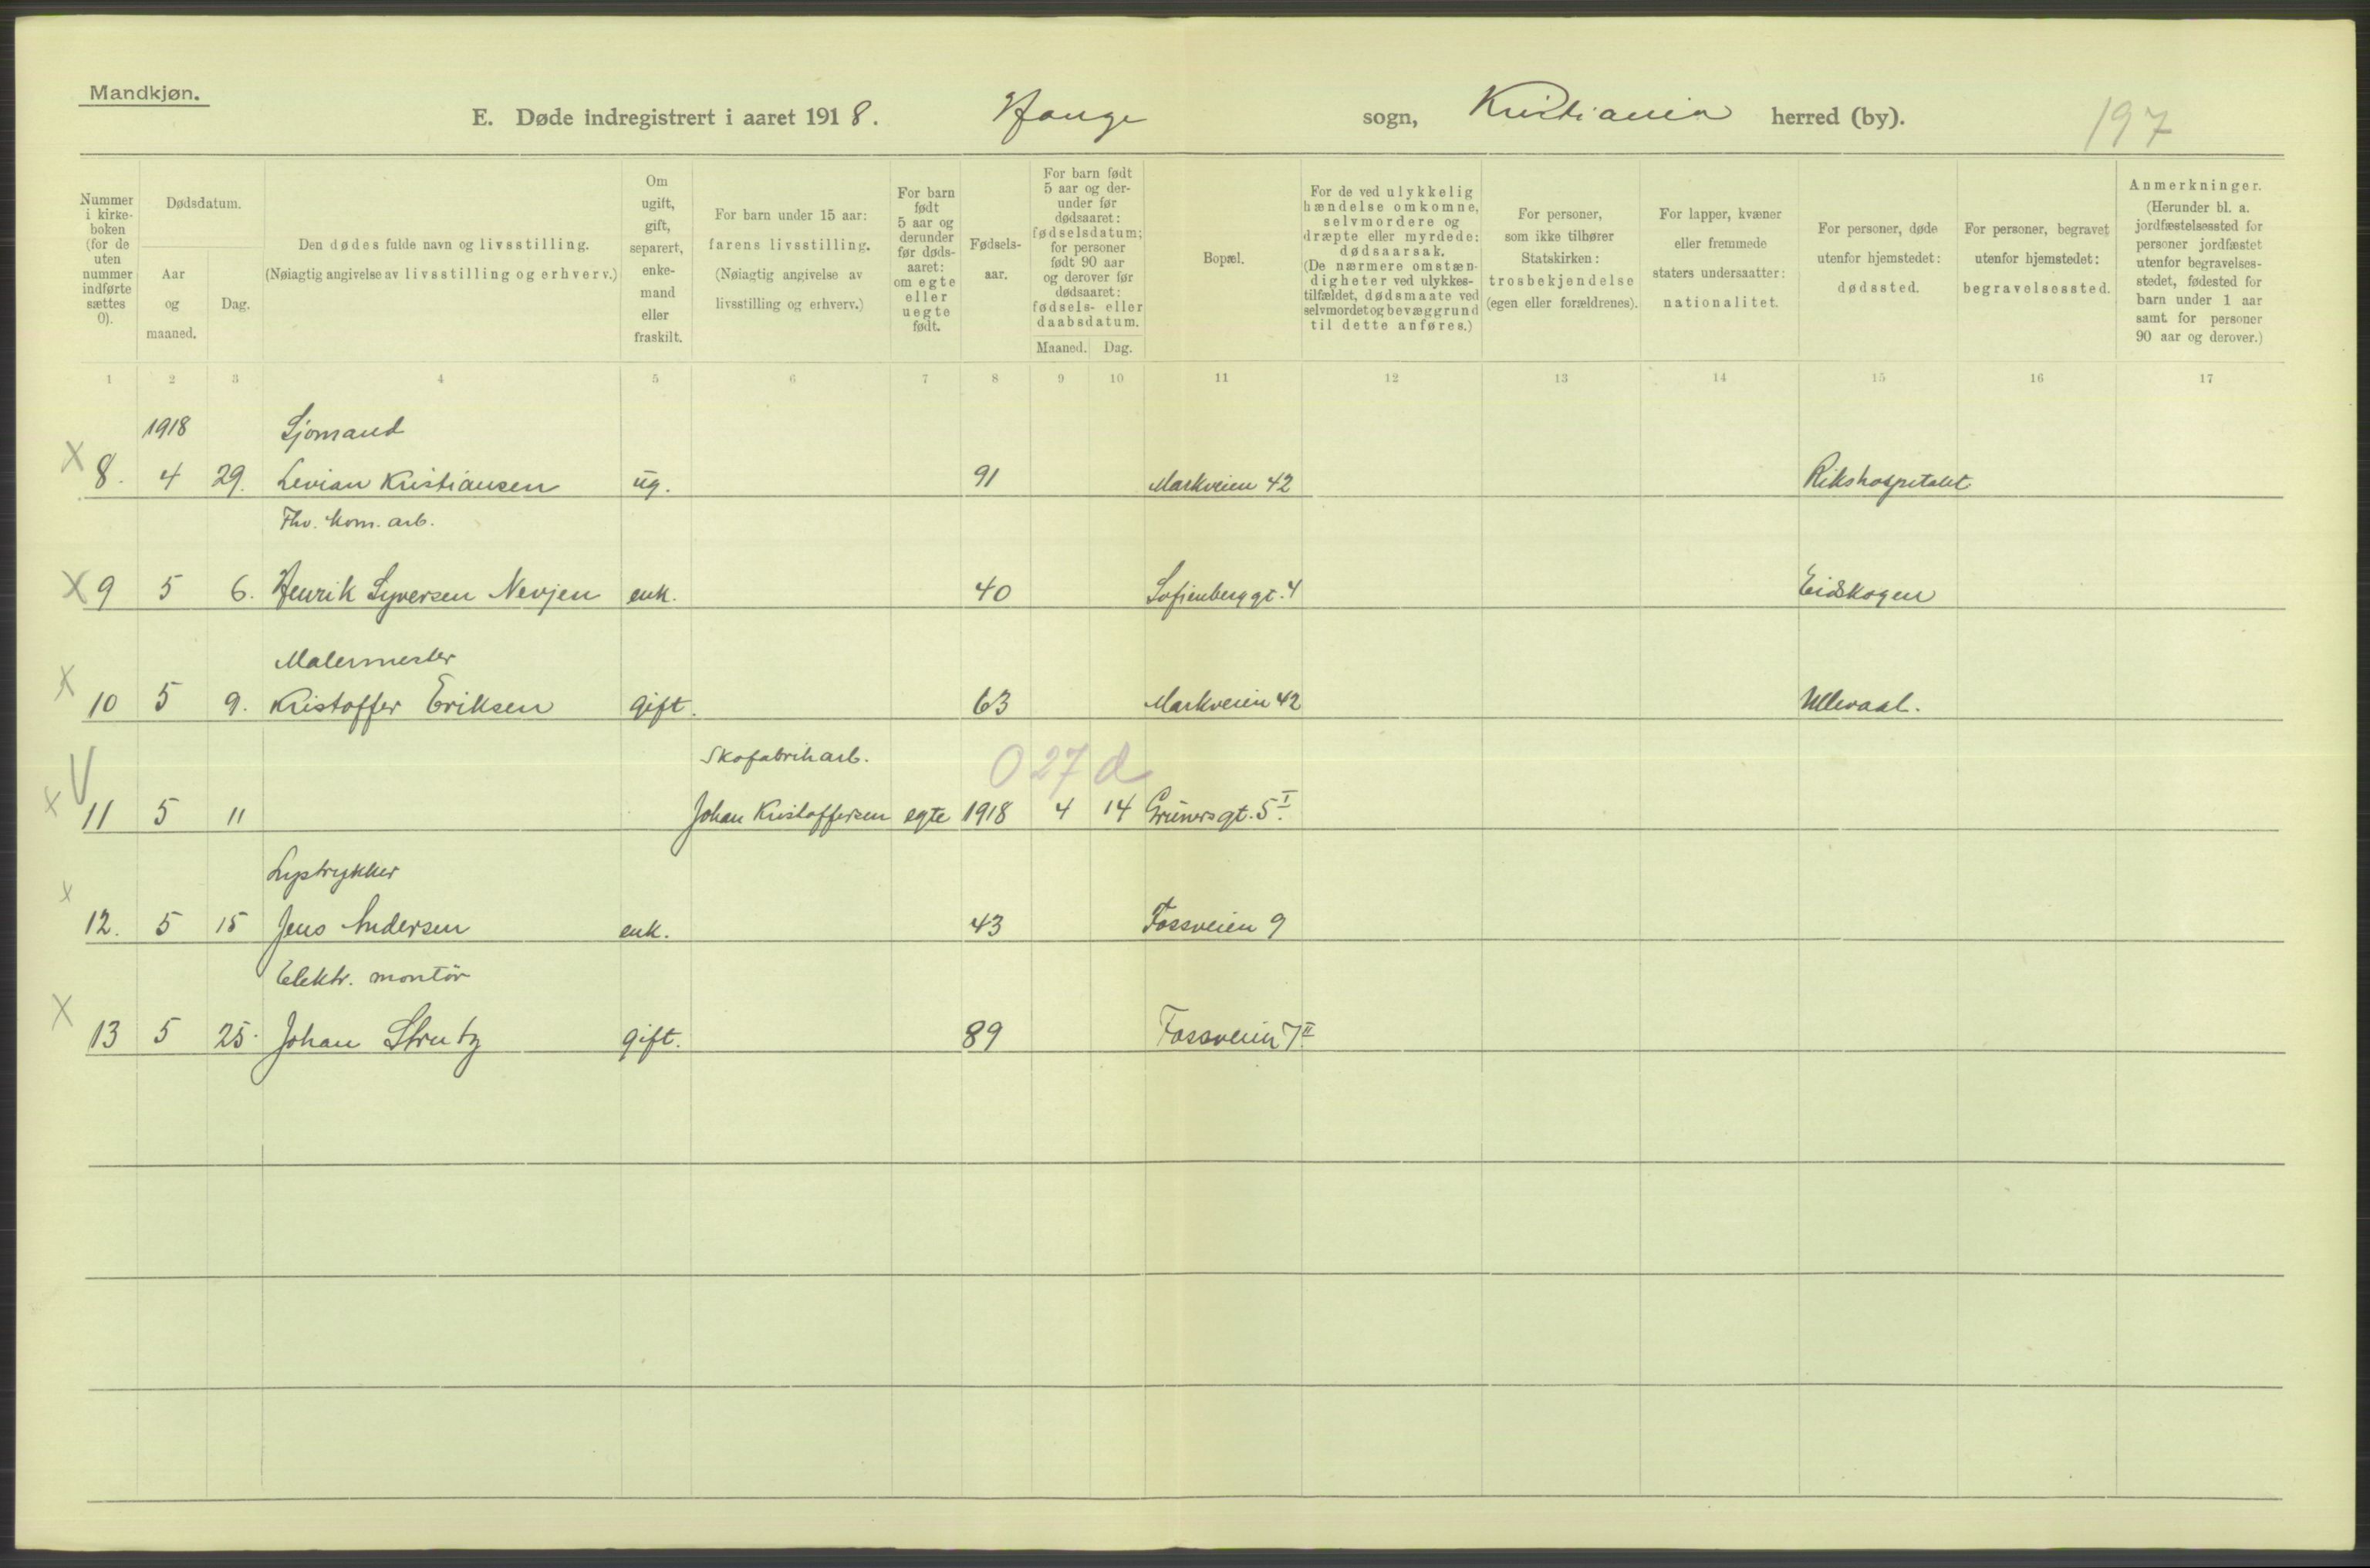 Mandkjøn.
E. Døde indregistrert i aaret 1918. Hauge sogn, Kristiania herred (by). 197
Nummer i kirkeboken (for de uten nummer indførte sættes 0).
Dødsdatum.
Aar og maaned.
Dag.
Den dødes fulde navn og livsstilling.
(Nøiagtig angivelse av livsstilling og erhverv.)
Om ugift, gift, separert, enkemand eller fraskilt.
For barn under 15 aar: farens livsstilling. (Nøiagtig angivelse av livsstilling og erhverv.)
For barn født 5 aar og derunder før dødsaaret: om egte eller uegte født.
Fødselsaar.
For barn født 5 aar og derunder før dødsaaret: fødselsdatum; for personer født 90 aar og derover før dødsaaret: fødsels- eller daabsdatum.
Maaned. Dag.
Bopæl.
For de ved ulykkelig hændelse omkomne, selvmordere og dræpte eller myrdede: dødsaarsak. (De nærmere omstændigheter ved ulykkestilfældet, dødsmaate ved selvmordet og bevæggrund til dette anføres.)
For personer, som ikke tilhører Statskirken: trosbekjendelse (egen eller forældrenes).
For lapper, kvæner eller fremmede staters undersaatter: nationalitet.
For personer, døde utenfor hjemstedet: dødssted.
For personer, begravet utenfor hjemstedet: begravelsessted.
Anmerkninger. (Herunder bl. a. jordfæstelsessted for personer jordfæstet utenfor begravelsesstedet, fødested for barn under 1 aar samt for personer 90 aar og derover.)
1 2 3 4 5 6 7 8 9 10 11 12 13 14 15 16 17
1918 Sjomand
X 8. 4 29. Levian Kristiansen ug. 91 Markveien 42 Rikshospitalet
Fhv. kom. arb.
X 9 5 6. Henrik Syversen Nevjen enk. 40 Sofienberggt. 4 Eidskogen
Malermester
X 10 5 9. Kristoffer Eriksen gift. 63 Markveien 42 Ullevaal.
V Skofabrikarb. 0 27 d
X 11 5 11 Johan Kristoffersen egte 1918 4 14 Grünersgt. 5 I.
Lystrykker
X 12. 5 15 Jens Andersen enk. 43 Fossveien 9
Elektr. montör
X 13 5 25. Johan Strutz gift. 89 Fossveien 7 II.